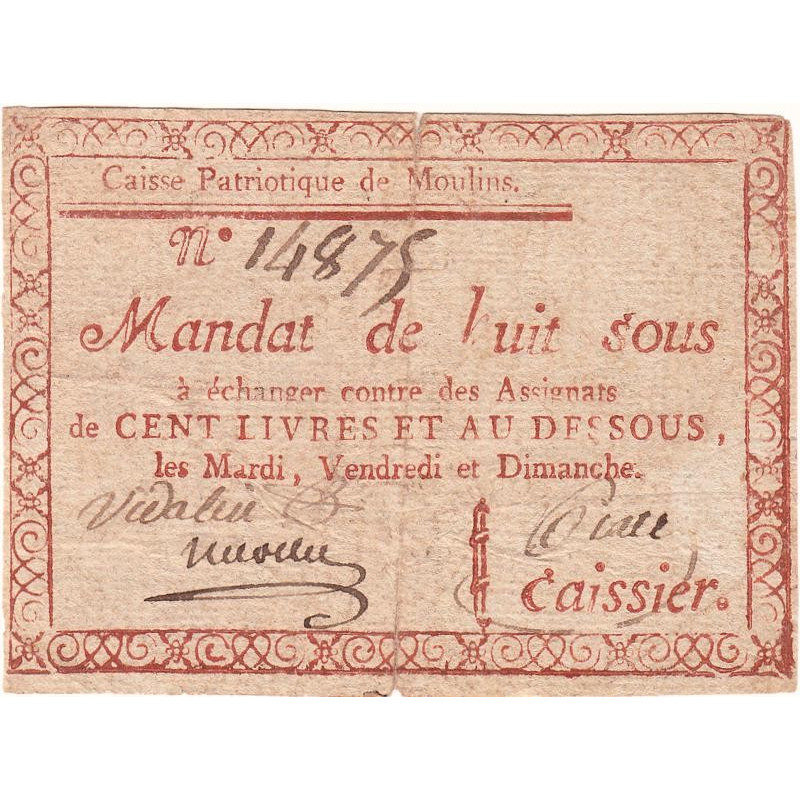 Caisse Patriotique de Moulins.
N° 14875
Mandat de huit sous
à échanger contre des Assignats
de CENT LIVRES ET AU DESSOUS,
les Mardi, Vendredi et Dimanche.
Caissier.